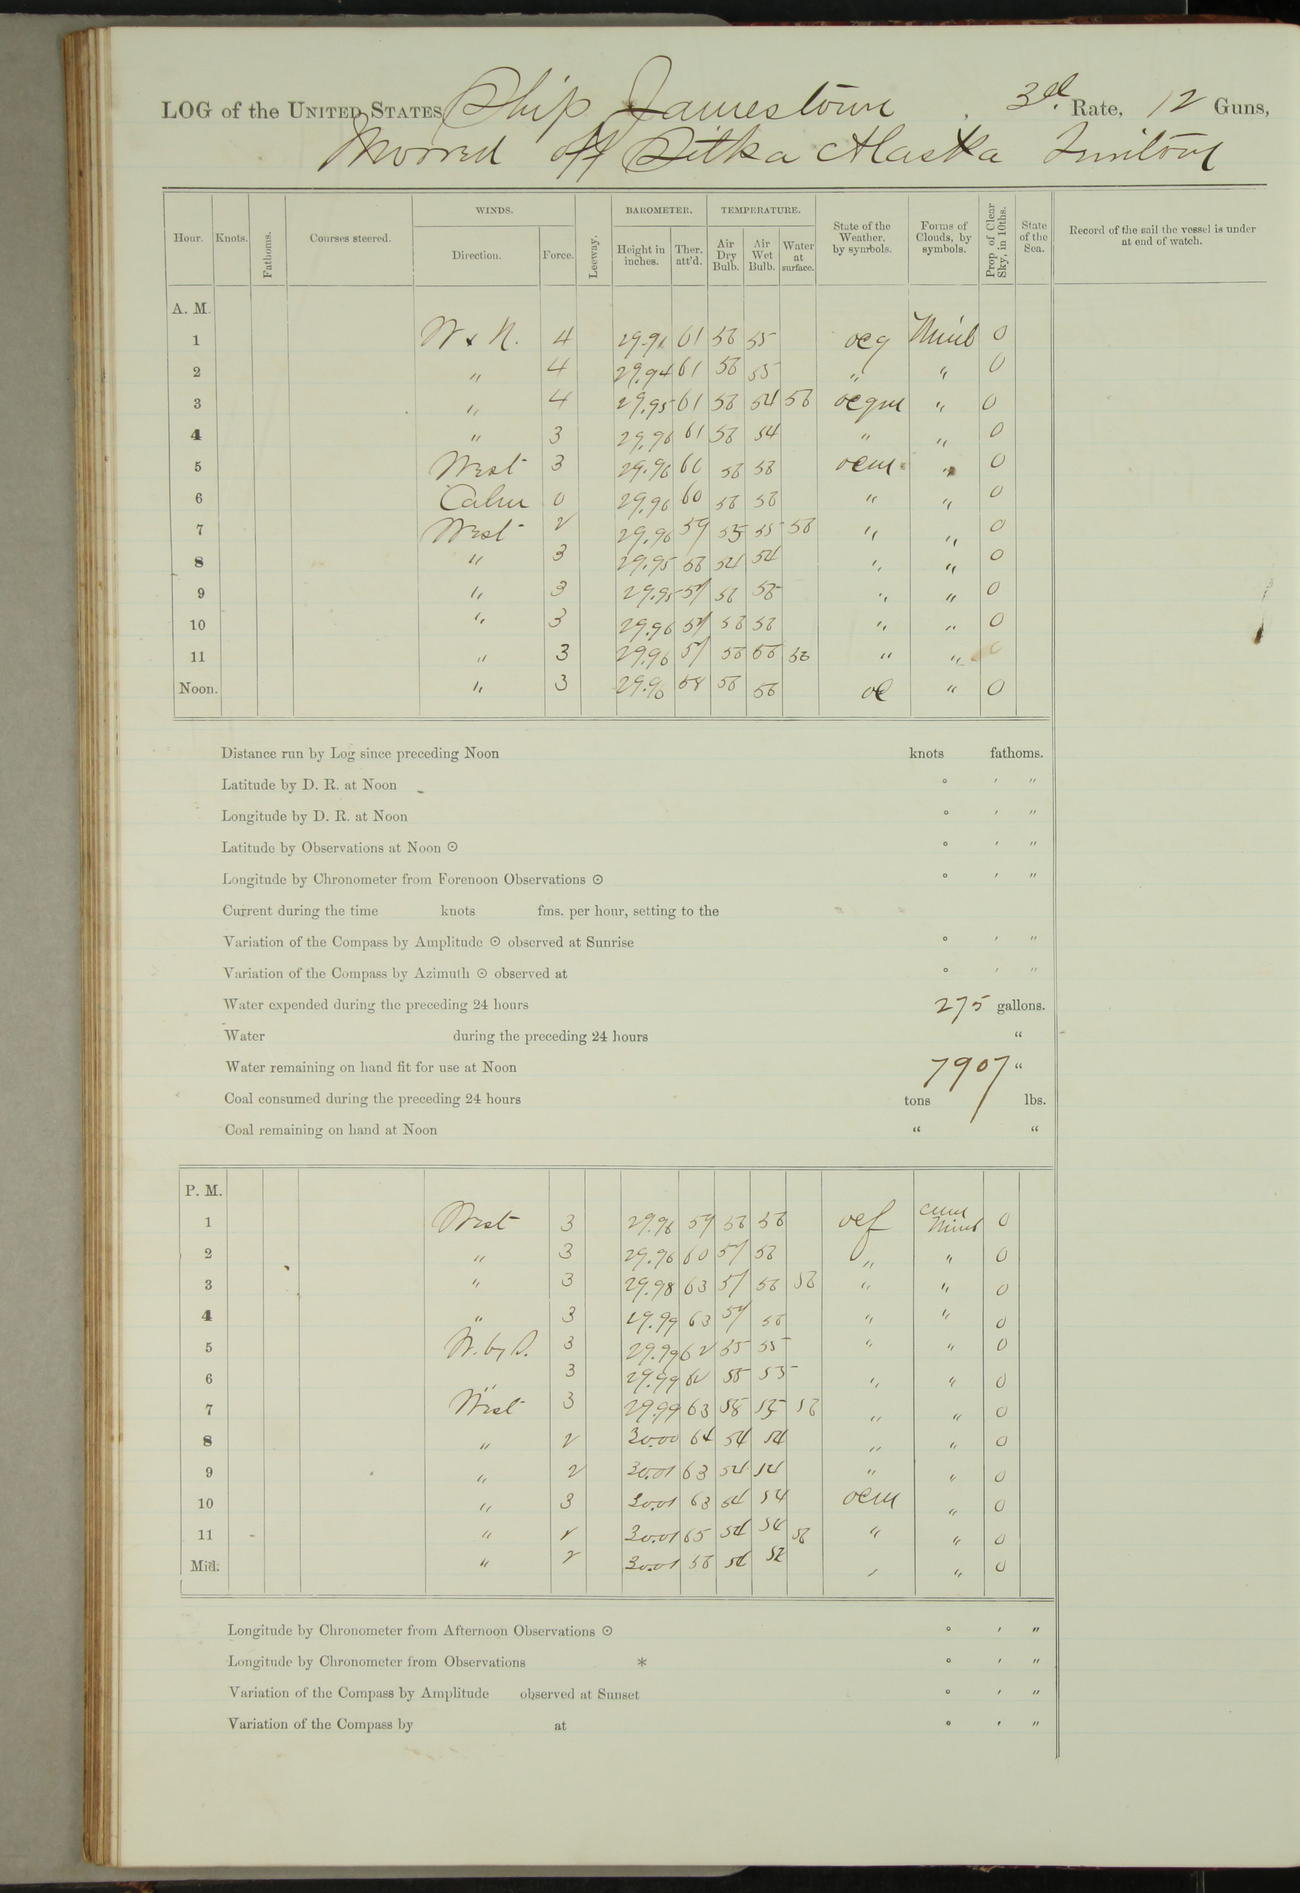 LOG of the UNITED STATES Ship Jamestown, 3rd. Rate, 12 Guns,
Moored off Sitka Alaska
Hour. Knots. Fathoms. Courses steered. WINDS. Direction. Force. Leeway. BAROMETER. Height in inches. Ther. att'd. TEMPERATURE. Air Dry Bulb. Air Wet Bulb. Water at surface. State of the Weather, by symbols. Forms of Clouds, by symbols. Prop. of Clear Sky, in 10ths. State of the Sea. Record of the sail the vessel is under at end of watch.
A. M.
1 4 61 55 ocq Nimb 0
2 " 4 29.94 61 55 " " 0
3 " 4 29.95 61 54 ocqm " 0
4 " 3 29.96 61 54 " " 0
5 West 3 29.96 ocm " 0
6 Calm 0 29.96 60 " " 0
7 West 2 29.96 59 55 " " 0
8 " 3 29.95 54 54 " " 0
9 " 3 29.95 57 " " 0
10 " 3 29.96 57 " " 0
11 " 3 29.96 57 " " 0
Noon. " 3 29.96 58 oc " 0
Distance run by Log since preceding Noon knots fathoms.
Latitude by D. R. at Noon ° ′ ″
Longitude by D. R. at Noon ° ′ ″
Latitude by Observations at Noon ☉ ° ′ ″
Longitude by Chronometer from Forenoon Observations ☉ ° ′ ″
Current during the time knots fms. per hour, setting to the
Variation of the Compass by Amplitude ☉ observed at Sunrise ° ′ ″
Variation of the Compass by Azimuth ☉ observed at ° ′ ″
Water expended during the preceding 24 hours 275 gallons.
Water during the preceding 24 hours "
Water remaining on hand fit for use at Noon 7907 "
Coal consumed during the preceding 24 hours tons lbs.
Coal remaining on hand at Noon " "
P. M.
1 West 3 29.96 59 ocf Cum Nimb 0
2 " 3 29.96 60 57 " " 0
3 " 3 29.98 63 57 " " 0
4 " 3 29.99 63 57 " " 0
5 W. by S. 3 29.99 62 55 55 " " 0
6 " 3 29.99 55 " " 0
7 West 3 29.99 63 55 " " 0
8 " 2 30.00 64 54 54 " " 0
9 " 2 30.01 63 54 54 " " 0
10 " 3 30.01 63 54 54 ocm " 0
11 " 2 30.01 65 54 54 " " 0
Mid. " 2 30.01 " 0
Longitude by Chronometer from Afternoon Observations ☉ ° ′ ″
Longitude by Chronometer from Observations * ° ′ ″
Variation of the Compass by Amplitude observed at Sunset ° ′ ″
Variation of the Compass by at ° ′ ″